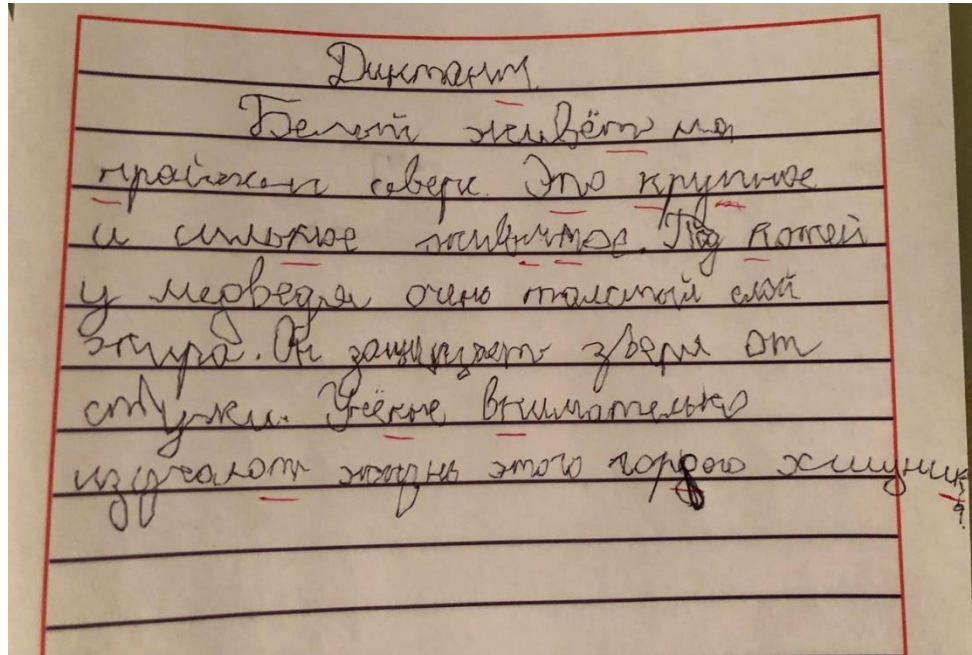 Диктант
Белый живёт на
крайнем севере. Это крупное
и сильное животное. Под кожей
у медведя очень толстый слой
жира. Он защищает зверя от
стужи. Учёные внимательно
изучают жизнь этого гордого хищника.